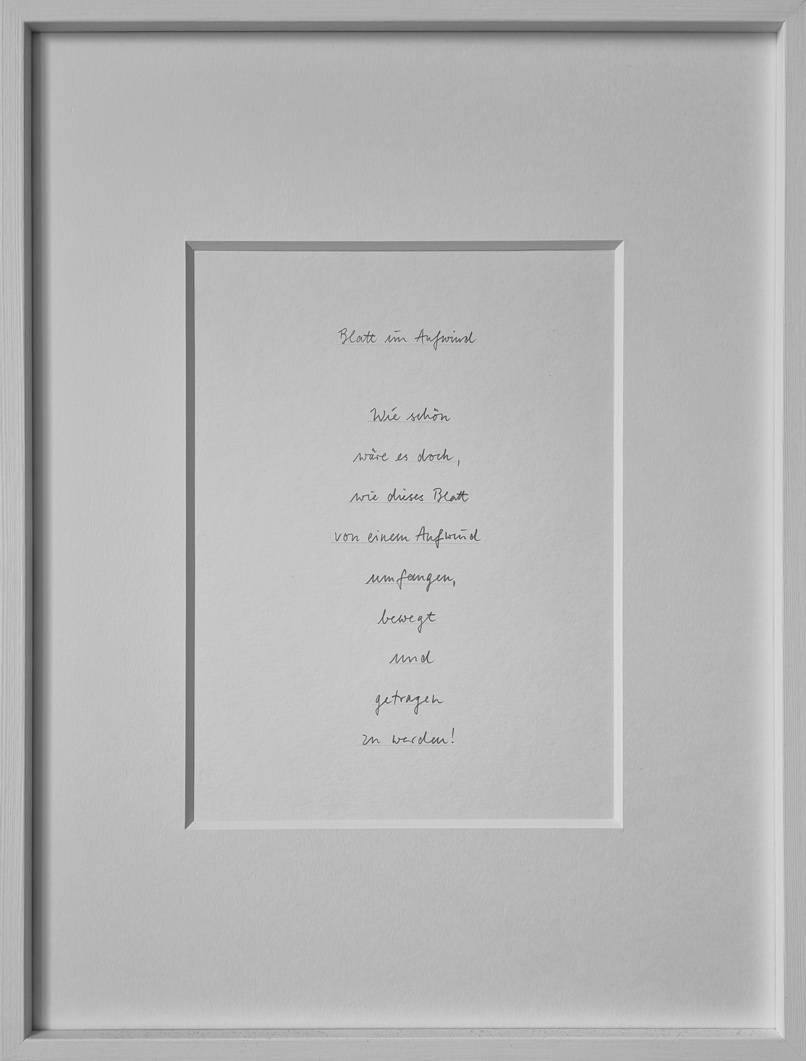 Blatt im Aufwind
Wie schön
wäre es doch,
wie dieses Blatt
von einem Aufwind
umfangen,
bewegt
und
getragen
zu werden!